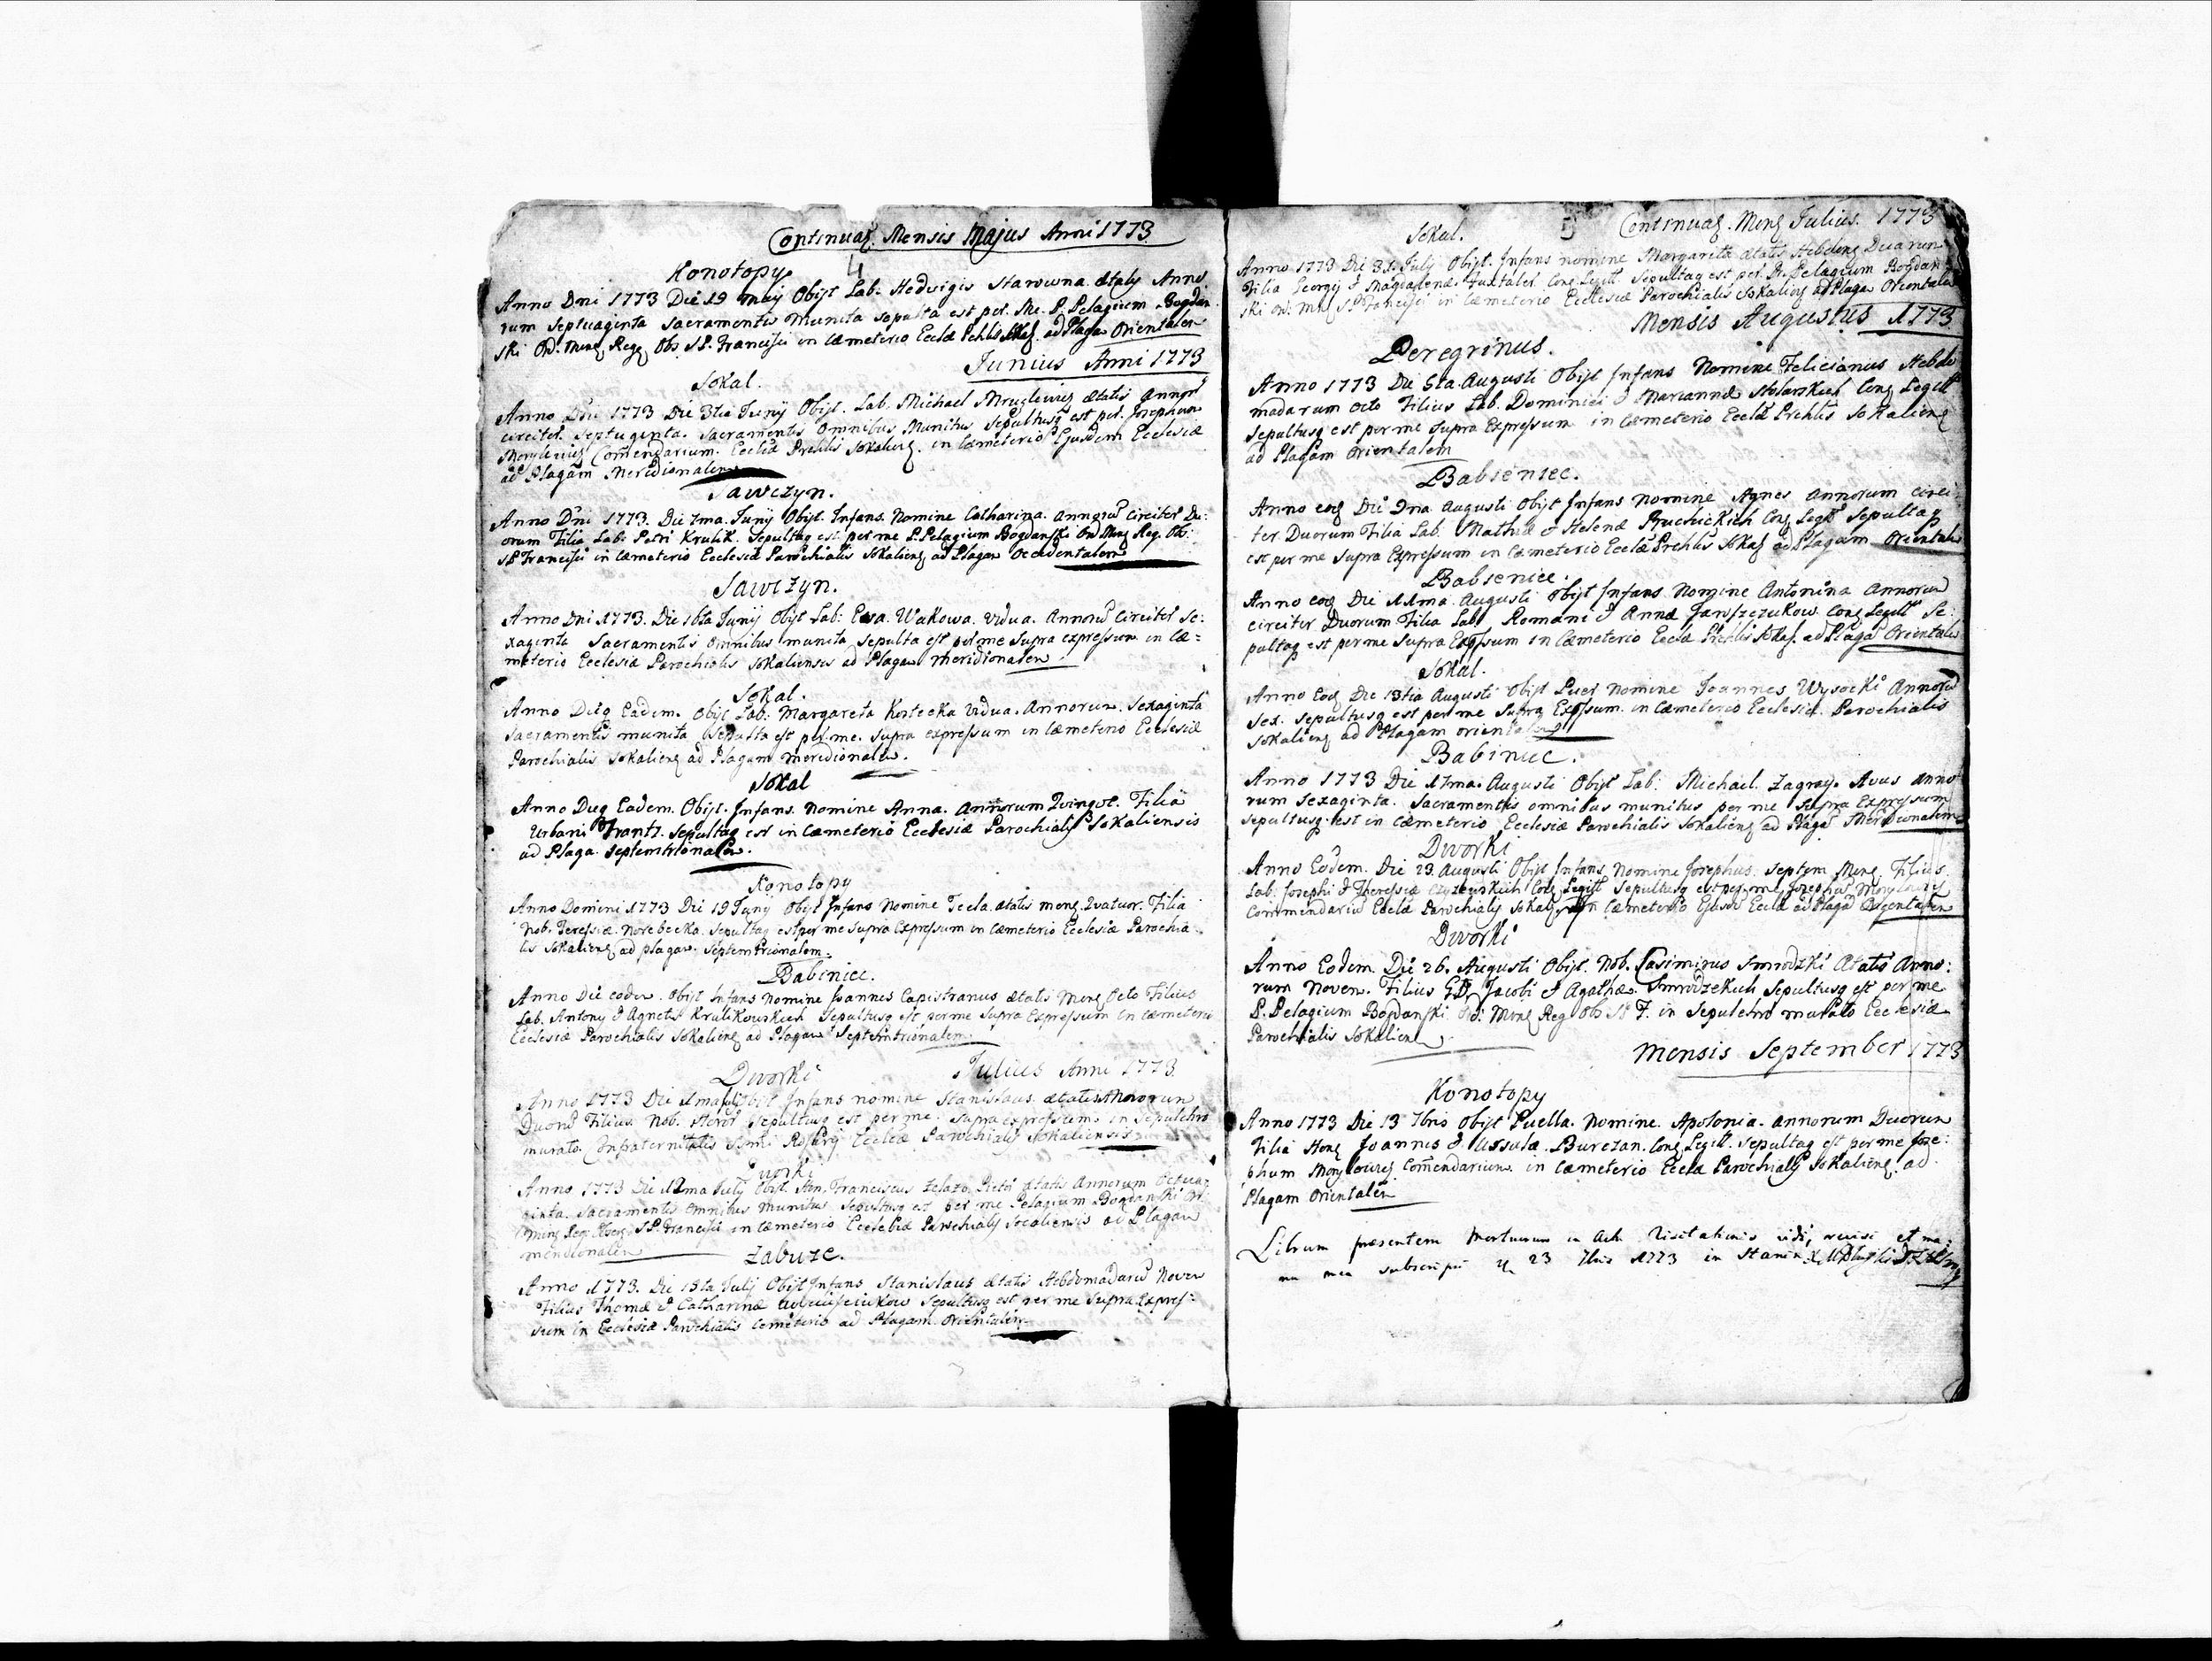 Continuaõ. Mensis Majus Anni 1773
4
Konotopy
Anno Dni 1773 Die 19 Maij Obijt Lab: Hedvigis Starowna ætatis Anno
rum Septuaginta Sacramentis Munita sepulta est per Me P. Pelagium Bogdan
ski Ord: Min Reg Obs S P. Francisci in Cæmeterio Eccłæ Pchlis Skal ad Plaga Orientalem
Junius Anni 1773
Sokal.
Anno Dni 1773 Die 3tia Junij Obijt. Lab. Michael ætatis Annor
circiter Septuginta. Sacramentis Omnibus Munitus Sepultus est per Josephum
Comendarium Ecclæ Prchlis Sokalien in Cæmeterio Ejusdem Ecclesiæ
ad Plagam Meridionalem
Sawczyn.
Anno Dni 1773. Die 7ma. Junij Obijt. Infans. Nomine Catharina. Annorũ Circiter Du:
orum Filia Lab: Petri Krulik. Sepulta est per me P. Pelagium Bogdanski Ord Min Reg. Obs:
S P Francisci in Cæmeterio Ecclesiæ Parochialis Sokalien ad Plagam Occidentalem
Sawczyn.
Anno Dni 1773. Die 16ta Junij Obijt Lab: Eva. Wakowa. Vidua. Annorũ Circiter Se:
xaginta Sacramentis Omnibus munita Sepulta est per me Supra expressum in Cæ=
meterio Ecclesiæ Parochialis Sokaliensis ad Plagam Meridionalem
Sokal.
Anno Die Eadem. Obijt Lab: Margareta Kostecka Vidua. Annorum. Sexaginta
Sacramentis munita Sepulta est per me. Supra expressum in Cæmeterio Ecclesiæ
Parochialis Sokalien ad Plagam Meridionalem.
Sokal
Anno Die Eadem. Obijt. Infans. Nomine Anna. Annorum Quinque. Filia
Urbani Frantz. Sepulta est in Cæmeterio Ecclesiæ Parochialis Sokaliensis
ad Plaga. Septemtrionalem.
Konotopy
Anno Domini 1773 Die 19 Junij Obijt Infans Nomine Tecla. ætatis mens. Quatuor. Filia
Nob. Teressiæ. Sepulta est per me Supra Expressum in Cæmeterio Ecclesiæ Parochia:
lis Sokalien ad plagam. Septemtrionalem.
Babiniec.
Anno Die eodem. Obijt Infans Nomine Joannes Capistranus ætatis Mens Octo Filius
Lab. Antony & Agnetis Krulikowskich Sepultus est per me Supra Expressum in Cæmeterio
Ecclesiæ Parochialis Sokalien ad Plagam Septemtrionalem.
Dworki Julius Anni 1773.
Anno 1773 Die Obijt Infans nomine Stanislaus ætatis Annorum
Duorũ Filius Nob. Sepultus est per me Supra expressum in Sepulchro
murato Confraternitatis Rosarij Ecclæ Parochialis Sokaliensis
Dworki
Anno 1773 Die 12ma Julij Obijt Franciscus ætatis Annorum
Sacramentis Omnibus Munitus Sepultus est per me Pelagium Bogdanski Or:
Min Reg S P. Francisci in Cæmeterio Ecclesiæ Parochialis Socaliensis ad Plagam
meridionalem
Zabuze.
Anno 1773. Die 15ta Julij Obijt Infans Stanislaus ætatis Hebdomadarũ Novem
Filius Thomæ & Catharinæ Sepultus est per me Supra Expres=
sum in Ecclesiæ Parochialis Cemeterio ad Plagam Orientalem
5 Continuaõ. Mens Julius. 1773
Sokal.
Anno 1773 Die 31 Julij Obijt. Infans nomine Margarita ætatis Hebdom Duarum
Filia Georgij & Magdalenæ Conj Legitt Sepulta est per P. Pelagium Bogdan
ski Or: Min S P Francisci in Cæmeterio Ecclesiæ Parochialis Sokalien ad Plagam Orientalem
Mensis Augustus 1773
Peregrinus.
Anno 1773 Die 6ta. Augusti Obijt Infans Nomine Felicianus Hebdo
madarum Octo Filius Lab. Dominici & Mariannæ Stolarskich Conj Legitt
Sepultus est per me Supra Expressum in Cæmeterio Ecclæ Prchlis Sokalien
ad Plagam Orientalem
Babieniec.
Anno eod Die 9na Augusti Obijt Infans Nomine Agnes Annorum circi
ter Duorum Filia Lab. Mathiæ & Helenæ Conj Legitt Sepulta
est per me Supra Expressum in Cæmeterio Ecclæ Prchlis Sokal ad Plagam Orientalem
Babieniec.
Anno eod Die 11ma Augusti Obijt Infans Nomine Antonina Annorum
circiter Duorum Filia Lab Romani & Annæ Janiszczukow Conj Legitt Se:
pulta est per me Supra Expssum in Cæmeterio Ecclæ Prchlis Sokal. ad Plaga Orientalem
Sokal.
Anno Eod Die 13tia Augusti Obijt Puer Nomine Joannes Wysocki Annorũ
Sex. Sepultus est per me Supra Expssum in Cæmeterio Ecclesiæ Parochialis
Sokalien ad Plagam orientalem
Babiniec.
Anno 1773 Die 17ma. Augusti Obijt Lab: Michael Zagray. Avus anno
rum Sexaginta. Sacramentis omnibus munitus per me Supra Expressum
sepultus est in Cæmeterio Ecclesiæ Parochialis Sokalien ad Plagã Meridionalem
Dworki
Anno Eodem. Die 23. Augusti Obijt Infans Nomine Josephus. Septem Mens. Filius
Lab. Josephi & Theressiæ Conj Legitt Sepultus est per me Josephũ
Commendariũ Ecclæ Parochialis Sokal in Cæmeterio Ejusdẽ Ecclæ ad Plagã Orientalem
Dworki
Anno Eodem. Die 26. Augusti Obijt. Nob. Casimirus Smrodzki Ætatis Anno:
rum Novem. Filius GD. Jacobi & Agathæ. Smrodzckich Sepultus est per me
P. Pelagium Bogdanski Or: Min Reg Obs S F. in Sepulchro murato Ecclesiæ
Parochialis Sokalien
Mensis September 1773
Konotopy
Anno 1773 Die 13 7bris Obijt Puella. Nomine. Apolonia. Annorum Duorum
Filia Hon Joannis & Ursulæ. Burczan. Conj Legitt. Sepulta est per me Jose:
phum Comendarium in Cæmeterio Ecclæ Parochialis Sokalien. ad
Plagam Orientalem
Librum præsentem Mortuorum in Actu Visitationis vidi, revisi et ma:
nu mea subscripsi 23 7bris 1773 in